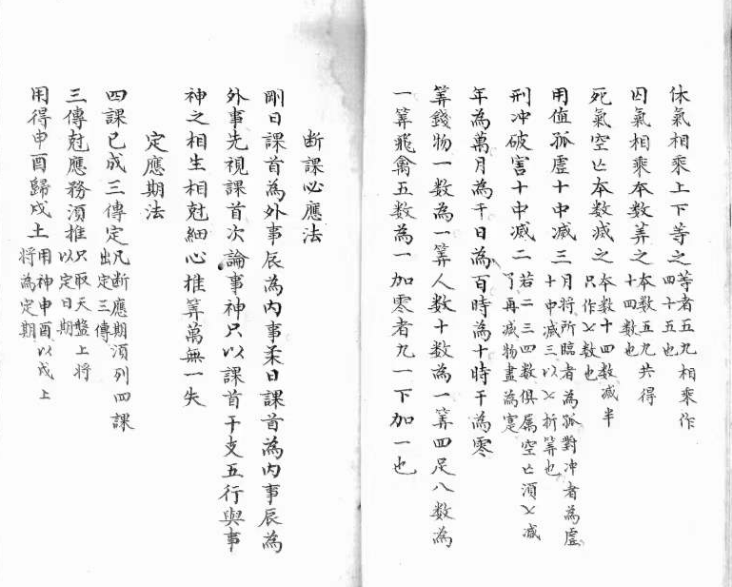 休氣相乘上下等之等者五九相乘作
四十五也
囚氣相乘本數筭之本數五九共得
十四數也
死氣空亡本數減之本數十四數減半
只作乂數也
用值孤虛十中減三月將所臨者為孤對冲者為虛
十中減三以乂折筭也
刑冲破害十中減二若二三四數俱屬空亡須乂減
了再減物盡為寔
年為萬月為千日為百時為十時干為零
筭錢物一數為一筭人數十數為一筭四足八數為
一筭飛禽五數為一加零者九一下加一也
断課必應法
剛日課首為外事辰為內事柔日課首為內事辰為
外事先視課首次論事神只以課首干支五行與事
神之相生相尅細心推筭萬無一失
定應期法
四課已成三傳定凡斷應期須列四課
出定三傳
三傳尅應務須推只取天盤上將
以定日期
用得申酉歸戍土用神申酉以戍上
將為定期